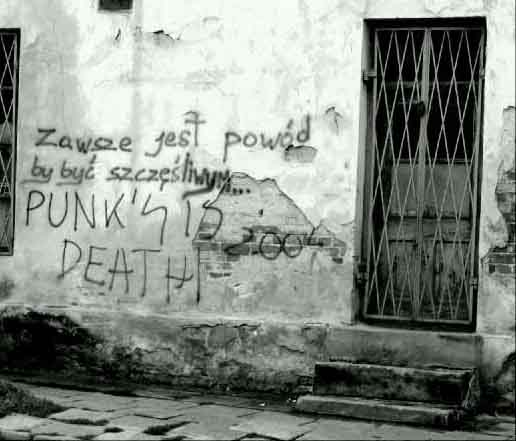 Zawsze jest powód
by być szczęśliwym...
PUNK'S IS
2004
DEATH!